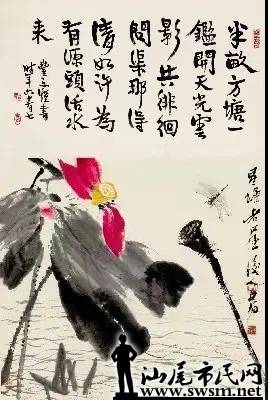 半畝方塘一
鑑開天光雲
影共徘徊
問渠那得
清如許為
有源頭活水
来
時年六十有七
汕尾市民网
www.swsm.net